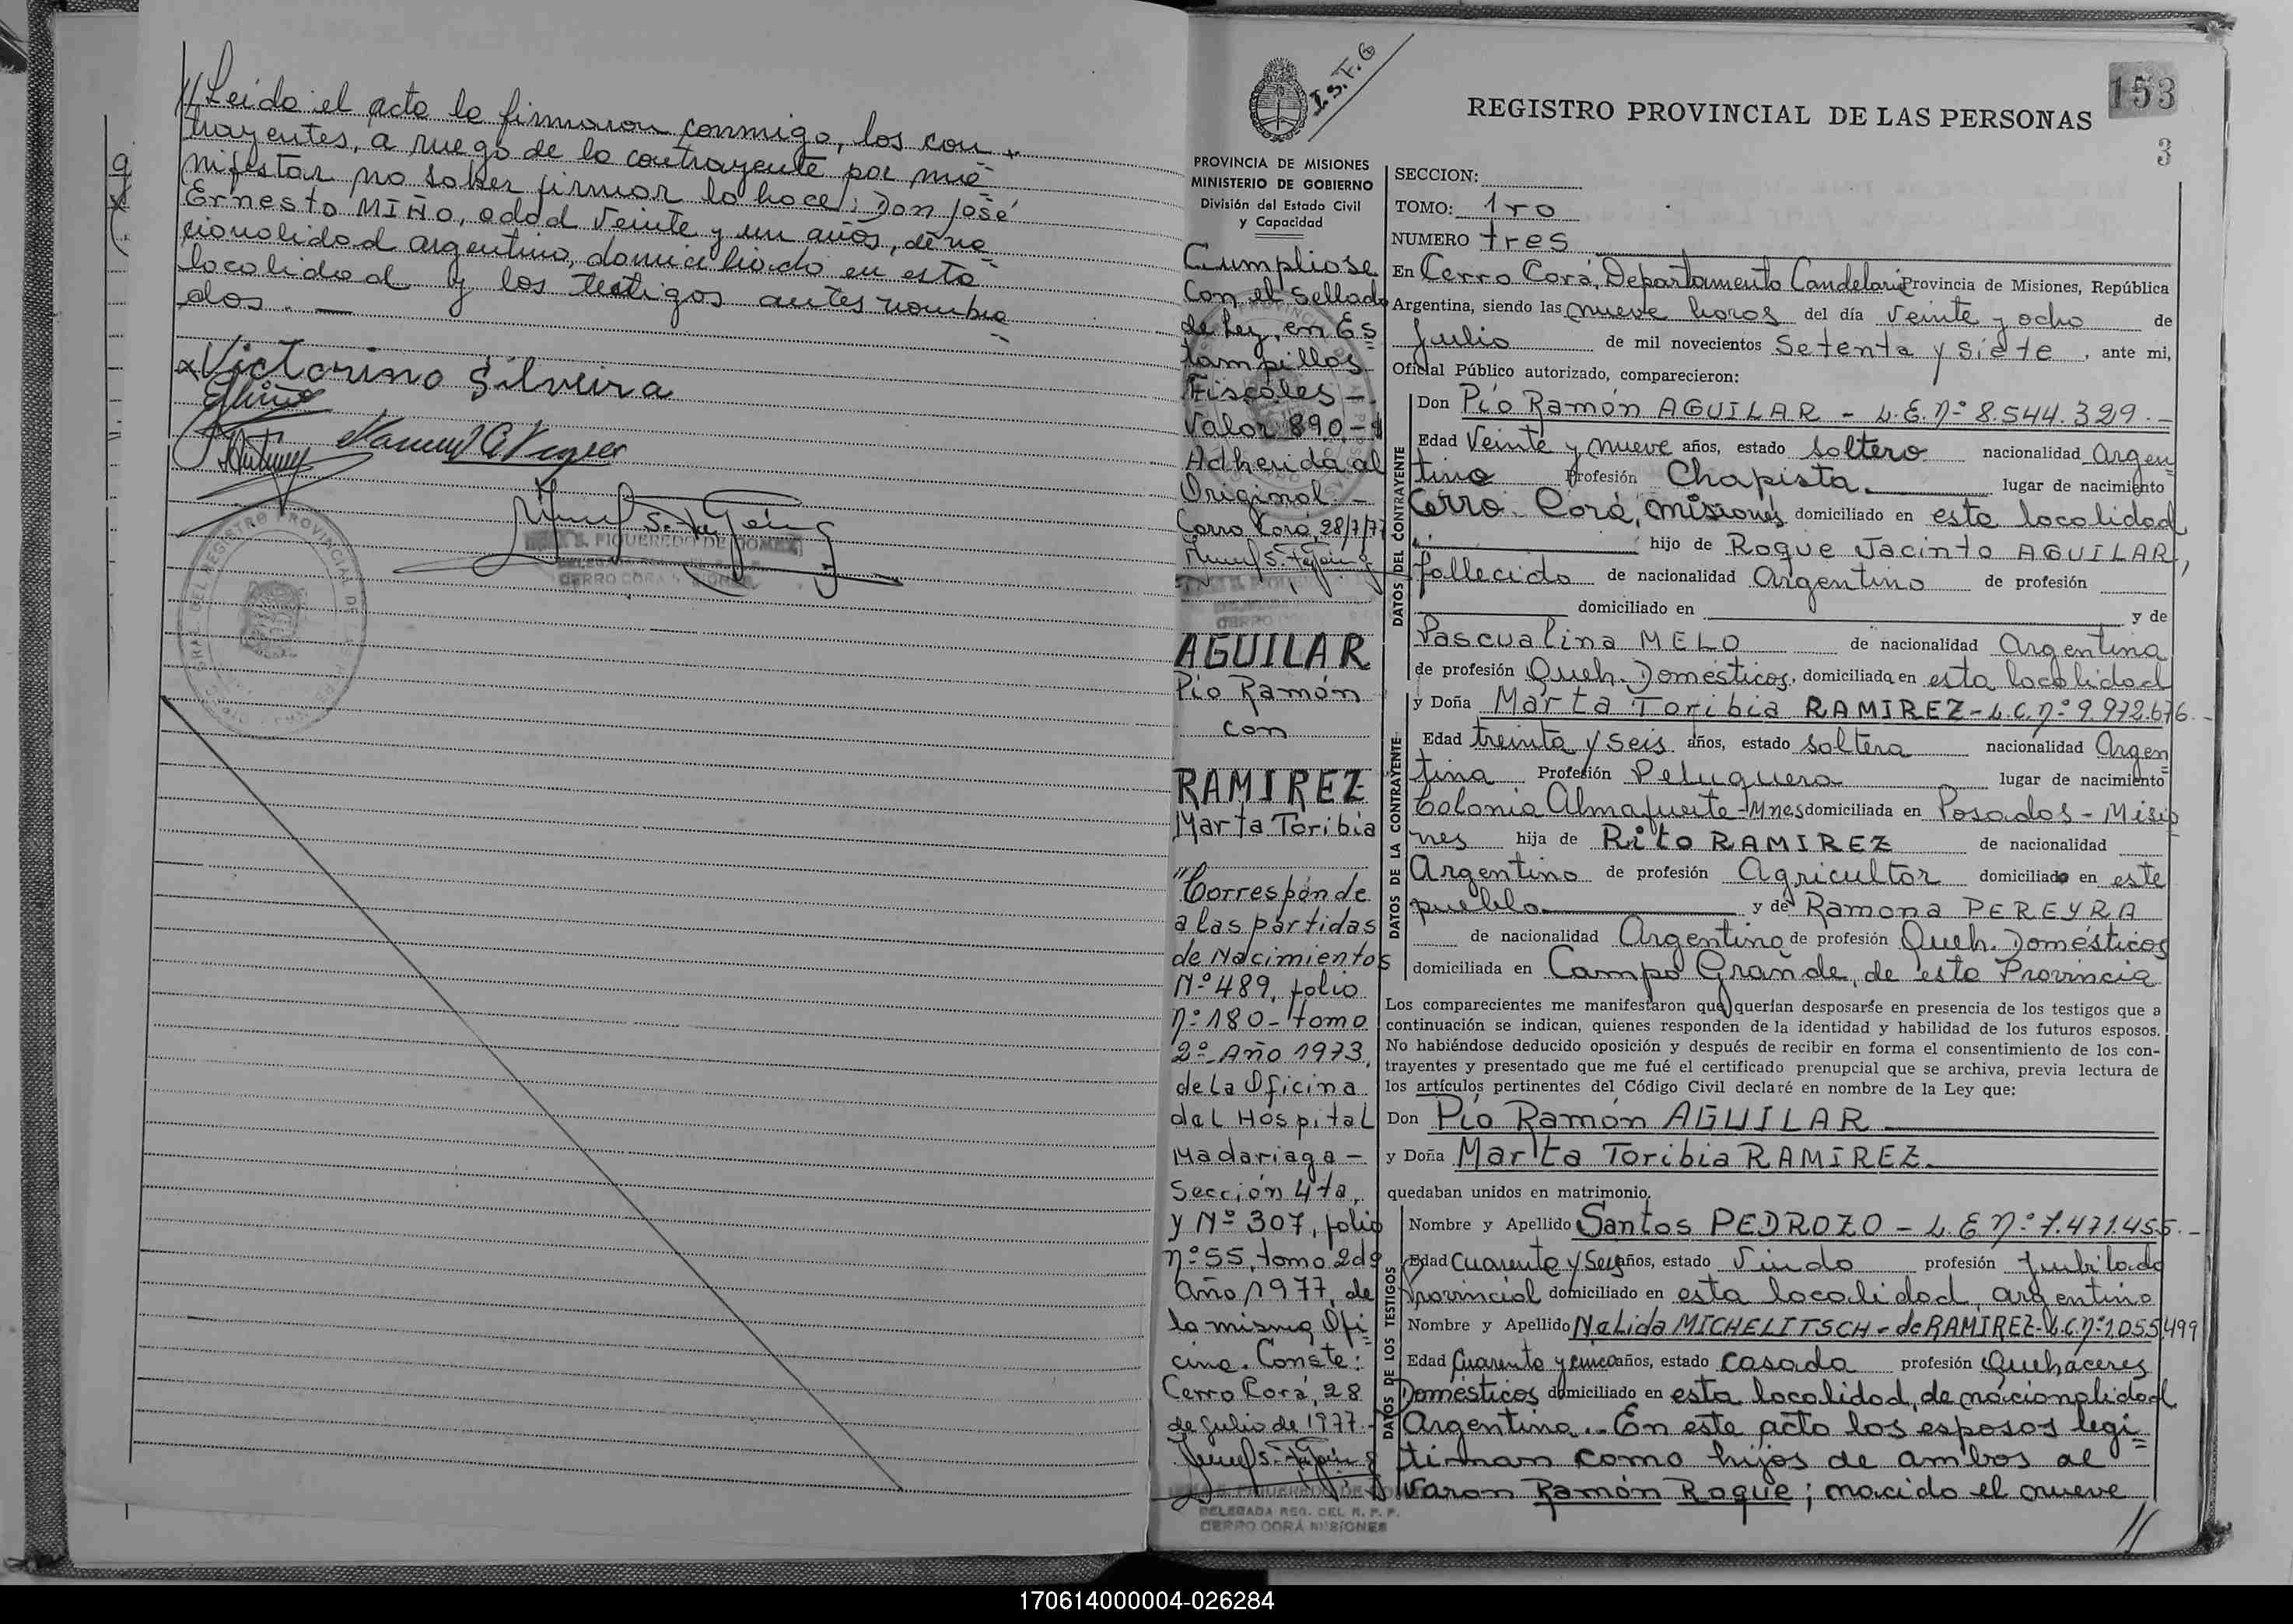 //Leido el acto lo firmaron conmigo, los con-
trayentes, a ruego de la contrayente por ma-
nifestar no saber firmar lo hace: Don José
Ernesto MIÑO, edad veinte y un años, de na-
cionalidad argentino, domiciliado en esta
localidad y los testigos antes nombra-
dos. —
x Victorino Silveira
S. FIGUEREDO DE GOMEZ
CERRO CORA
I.S.F.G
153
REGISTRO PROVINCIAL DE LAS PERSONAS
3
PROVINCIA DE MISIONES
MINISTERIO DE GOBIERNO
División del Estado Civil
y Capacidad
Cumpliose
Con el Sellado
de Ley, en Es=
tampillas
Fiscales -
Valor 890.-$
Adherida al
Original. -
Cerro Corá, 28/7/77
AGUILAR
Pío Ramón
con
RAMIREZ
Marta Toribia
"Corresponde
a las partidas
de Nacimientos
Nº 489, folio
nº 180 - tomo
2º - Año 1973,
de la Oficina
del Hospital
Madariaga -
Sección 4ta,
y Nº 307, folio
nº 55, tomo 2do
Año 1977, de
la misma Ofi=
cina. Conste:
Cerro Corá, 28
de Julio de 1977.-
DELEGADA REG. DEL R. P. P.
CERRO CORÁ MISIONES
SECCION:
TOMO: 1ro
NUMERO tres
En Cerro Corá, Departamento Candelaria Provincia de Misiones, República
Argentina, siendo las nueve horas del día veinte y ocho de
Julio de mil novecientos Setenta y siete, ante mi,
Oficial Público autorizado, comparecieron:
DATOS DEL CONTRAYENTE
Don Pío Ramón AGUILAR - L.E. nº 8.544.329.-
Edad Veinte y nueve años, estado soltero nacionalidad Argen=
tino Profesión Chapista. lugar de nacimiento
Cerro Corá, Misiones domiciliado en esta localidad
hijo de Roque Jacinto AGUILAR,
fallecido de nacionalidad Argentino de profesión
domiciliado en y de
Pascualina MELO de nacionalidad Argentina
de profesión Queh. Domésticos, domiciliada en esta localidad
DATOS DE LA CONTRAYENTE
y Doña Marta Toribia RAMIREZ - L.C. nº 9.972.676.-
Edad treinta y seis años, estado soltera nacionalidad Argen=
tina Profesión Peluquera lugar de nacimiento
Colonia Almafuerte - Mnes domiciliada en Posadas - Misio
nes hija de Rito RAMIREZ de nacionalidad
Argentino de profesión Agricultor domiciliado en este
pueblo y de Ramona PEREYRA
de nacionalidad Argentina de profesión Queh. Domésticos
domiciliada en Campo Grande, de esta Provincia
Los comparecientes me manifestaron que querían desposarse en presencia de los testigos que a
continuación se indican, quienes responden de la identidad y habilidad de los futuros esposos.
No habiéndose deducido oposición y después de recibir en forma el consentimiento de los con-
trayentes y presentado que me fué el certificado prenupcial que se archiva, previa lectura de
los artículos pertinentes del Código Civil declaré en nombre de la Ley que:
Don Pío Ramón AGUILAR
y Doña Marta Toribia RAMIREZ.
quedaban unidos en matrimonio.
DATOS DE LOS TESTIGOS
Nombre y Apellido Santos PEDROZO - L.E nº 7.471.455.-
Edad Cuarenta y Seis años, estado Viudo profesión Jubilado
Provincial domiciliado en esta localidad, argentino
Nombre y Apellido Nelida MICHELITSCH - de RAMIREZ - L.C. nº 1.055.499
Edad Cuarenta y cinco años, estado casada profesión Quehaceres
Domésticos domiciliado en esta localidad, de nacionalidad
Argentina.- En este acto los esposos legi=
timan como hijos de ambos al
varon Ramón Roque; nacido el nueve
//
170614000004-026284